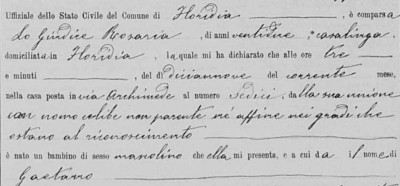 Uffiziale dello Stato Civile del Comune di Floridia, è comparsa
Lo Giudice Rosaria, di anni ventidue, casalinga
domiciliata in Floridia, la quale mi ha dichiarato che alle ore tre
e minuti, del dì diciannove del corrente mese,
nella casa posta in via Archimede al numero sedici, dalla sua unione
con uomo celibe non parente nè affine nei gradi che
ostano al riconoscimento
è nato un bambino di sesso mascolino che ella mi presenta, e a cui dà il nome di
Gaetano